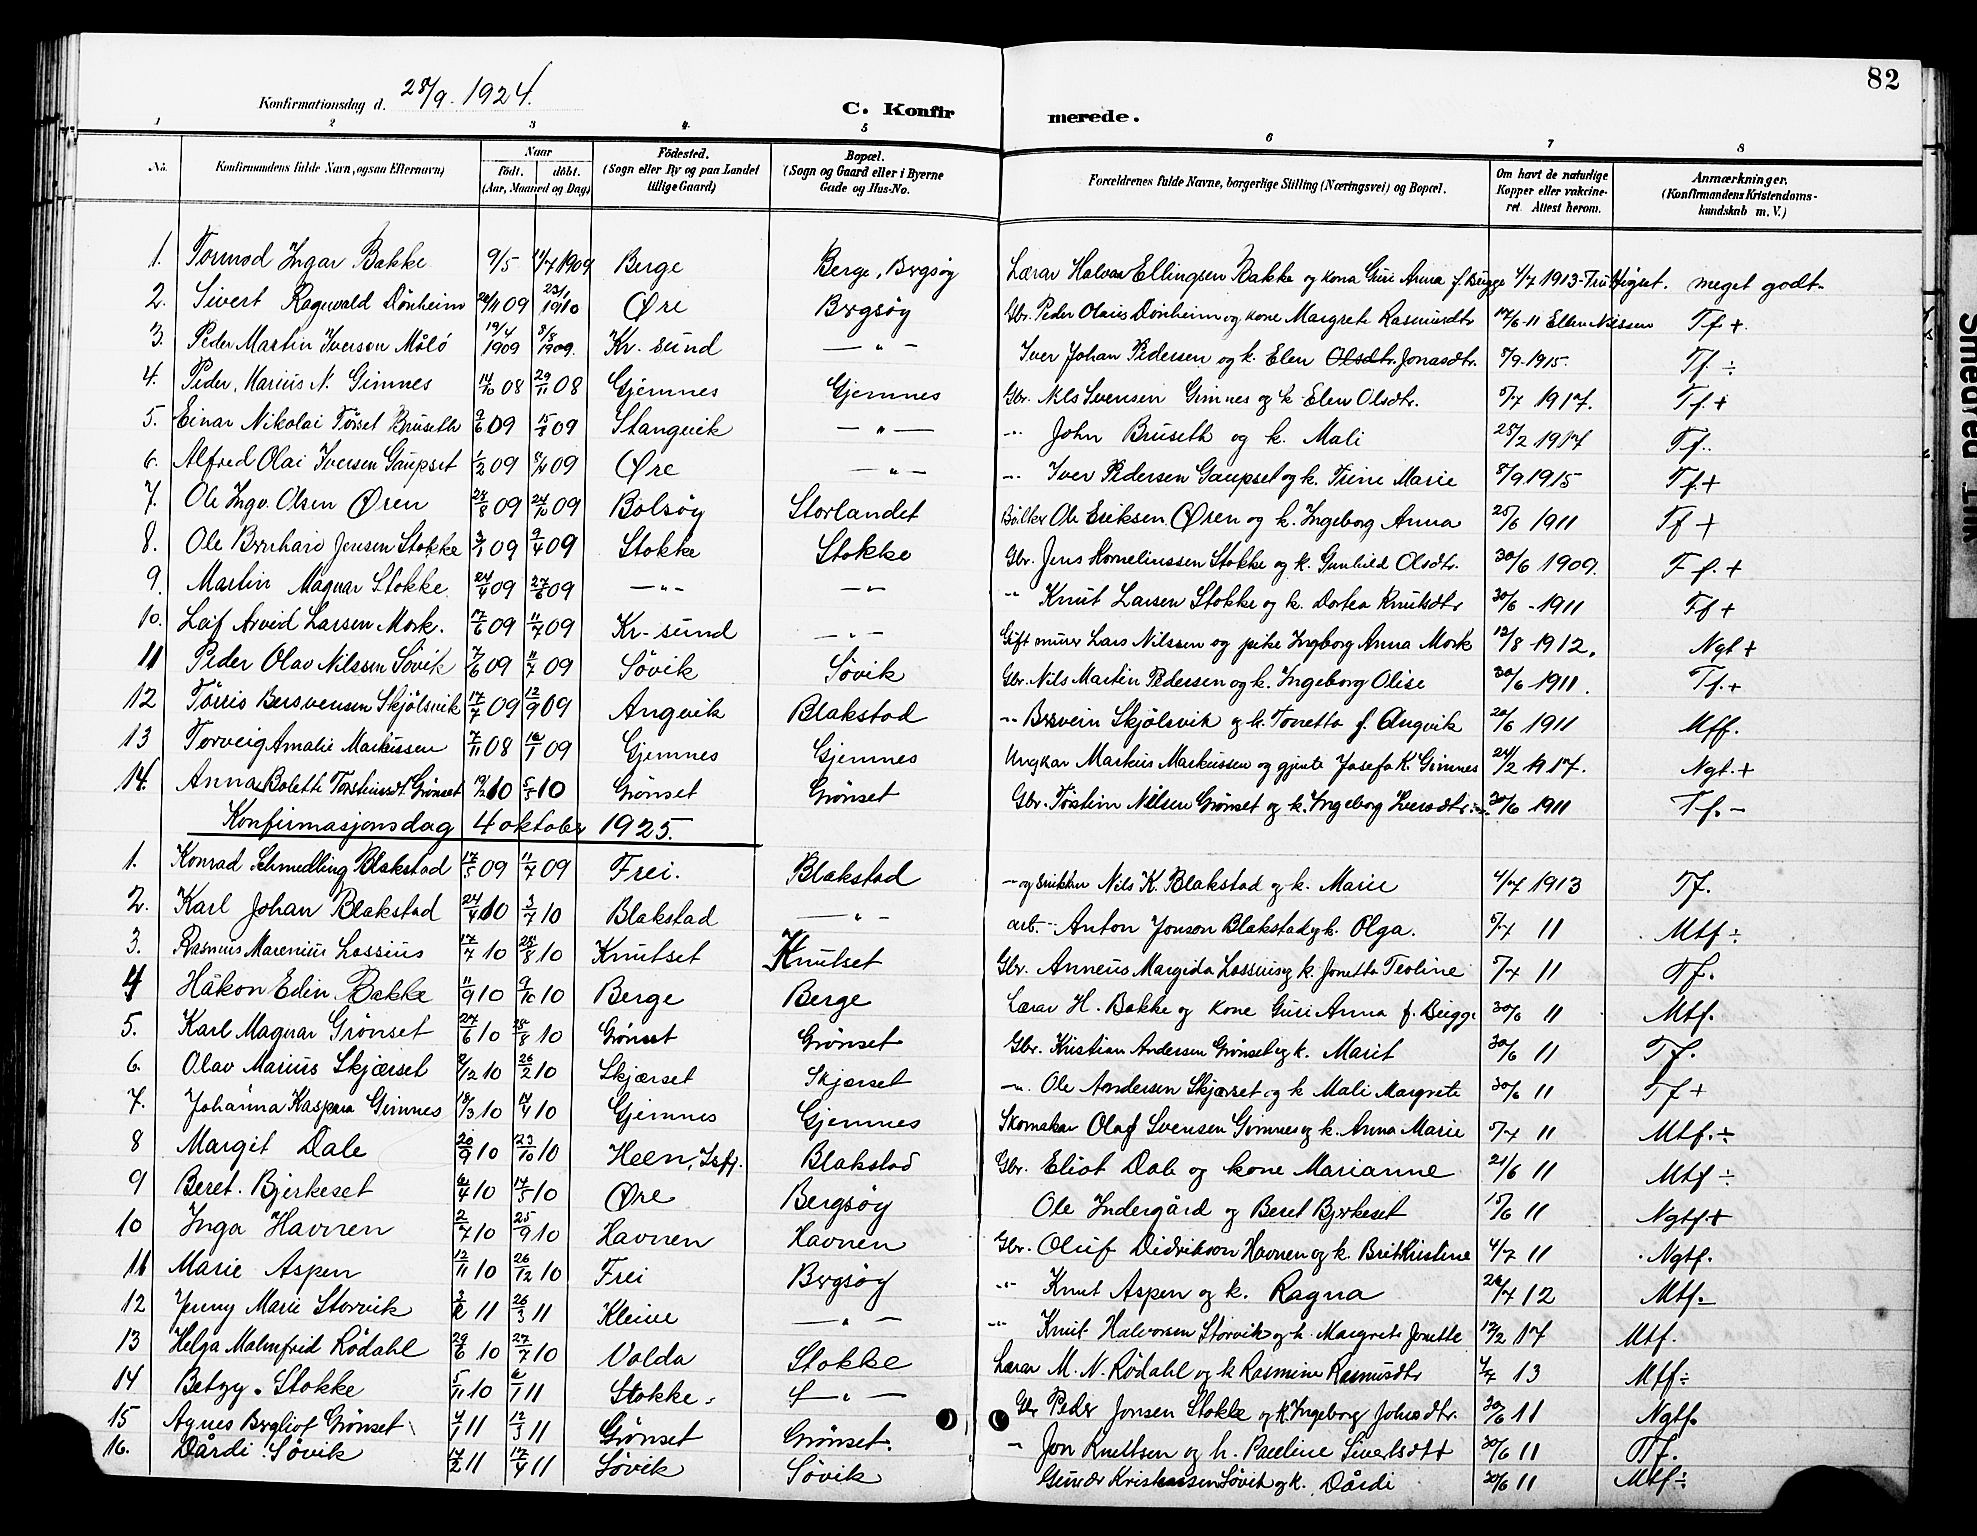 82
Konfirmationsdag d. 28/9. 1924.
C. Konfirmerede.
1 2 3 4. 5 6 7 8
No. Konfirmandens fulde Navn, ogsaa Efternavn) Naar födt. döbt. (Aar, Maaned og Dag) Födested. (Sogn eller By og paa Landet tillige Gaard) Bopæl. (Sogn og Gaard eller i Byerne Gade og Hus-No. Forældrenes fulde Navne, borgerlige Stilling (Næringsvei) og Bopæl. Om havt de naturlige Kopper eller vakcineret. Attest herom. Anmærkninger. (Konfirmandens Kristendomskundskab m. V.)
1. Tormod Ingar Bakke 9/5 11/7 1909 Berge Berge, Bergsøy Lærar Halvar Ellingsen Bakke og kona Guri Anna f. Bugge 4/7 1913 meget godt
2. Sivert Ragnvald Dønheim 26/11 09 23/1 1910 Øre Bergsøy Gbr. Peder Olaus Dønheim og kone Margrete Rasmusdtr 17/6-11 Ellen Nilssen Tf +.
3. Peder Martin Iverson Målö 19/4 1909 8/8 1909. Kr. sund — " — Iver Johan Pedersen og k. Elen Olsdtr. Jonasdtr. 8/9-1915. Tf. ÷
4. Peder, Marius N. Gimnes 14/10 08 29/11 08 Gjemnes Gjemnes Gbr. Nils Svensen Gimnes og k Elen Olsdtr. 5/7 1917. Tf. +
5. Einar Nikolai Tørset Bruseth 9/6 09 15/8 09 Stangvik — " — -"- John Bruseth og k. Mali 25/2 1917 Tf.
6. Alfred Olai Iversen Gaupset 1/2 09 8/4 09 Øre — " — -"- Iver Pedersen Gaupset og k. Trine Marie 8/9 1915 Tf. +
7. Ole Ingv. Olsen Øren 28/8 09 24/10 09 Bolsøy Storlandet Ole Eriksen Øren og k. Ingeborg Anna 25/6 1911 Tf +
8. Ole Bernhard Jensen Stokke 3/1 09 9/4 09 Stokke Stokke Gbr. Jens Kornelinssen Stokke og k. Gunhild Olsdtr. 30/6 1909. Tf. +
9. Martin Magnar Stokke. 24/4 09 27/6 09 — " — — " — " Knut Larsen Stokke og k. Dortea Knutsdtr 30/6 - 1911 Tf +
10. Leif Arvid Larsen Mork. 17/6 09 11/7 09 Kr-sund — " — Gift murer Lars Nilssen og pike Ingborg Anna Mork 12/8 1912. Ngt +
11 Peder Olav Nilssen Søvik 7/6 09 11/7 09 Søvik Søvik Gbr. Nils Martin Pedersen og k. Ingeborg Olise 30/6 1911. Tf. +
12 Tørris Bersvensen Skjølsvik 17/7 09 12/9 09 Angvik Blakstad -"- Bersvein Skjølsvik og k. Tonetta f. Angvik 20/6 1911 Mtf.
13 Torveig Amalie Markussen 7/11 08 10/1 09 Gjemnes Gjemnes Ungkar Markus Markussen og gjente Josefa K. Gimnes 24/2 1917. Ngt. +
14. Anna Bolette Torsteinsdt. Grønset 5/5 10 Grønset Grønset Gbr. Tostein Nilsen Grønset og k. Ingeborg Iversdtr. 30/6 1911 Tf. -
Konfirmasjonsdag 4 oktober 1925.
1. Konrad Schmedling Blakstad 17/5 09 11/7 09 Frei. Blakstad - og snikker Nils K. Blakstad og k. Marie 4/7 1913 Tf.
2. Karl Johan Blakstad 24/4 10 3/7 10 Blakstad — " — arb. - Anton Jonson Blakstad og k. Olga. 5/7 11 Mtf ÷
3. Rasmus Marenius Lossius 17/7 10 28/8 10 Knutset Knutset Gbr. Anneus Margida Lossius og k. Jonetta Teoline 5/7 11 Tf.
4 Håkon Edin Bakke 11/9 10 9/10 10 Berge Berge Lærar H. Bakke og kone Guri Anna f. Bugge 30/6 11 Mtf.
5. Karl Magnar Grönset 27/6 10 28/8 10 Grönset Grönset Gbr. Kristian Andersen Grönset og k. Marit 30/6 11 Tf.
6. Olav Marius Skjærset 26/2 10 Skjærset Skjærset -"- Ole Andersen Skjærset og k Mali Margrete 30/6 11 Tf +
7. Johanna Kaspara Gimnes 13/3 10 17/4 10 Gjemnes Gjemnes Skomakar Olaf Svensen Gimnes og k. Anna Marie 5/7 11 Mtf. ÷
8 Margit Dale 20/9 10 23/10 10 Heen, Isfj. Blakstad Gbr. Eliot Dale og kone Marianne 21/6 11 Mtf ÷
9 Beret. Bjerkeset 6/4 10 17/5 10 Øre Bergsøy Ole Indergård og Beret Bjerkeset 15/6 11 Ngtf. +
10 Inga Havnen 2/7 10 25/9 10 Havnen Havnen Gbr. Oluf Didrikson Havnen og k. Brit Kristine 4/7 11 Ngtf.
11 Marie Aspen 12/11 10 26/12 10 Frei Bergsøy -"- Knut Aspen og k. Ragna 20/7 12 Mtf. -
12 Jenny Marie Storvik 3/2 11 26/3 11 Kleive — " — -"- Knut Halvorsen Storvik og k. Margrete Jonette 12/2 17 Mtf.
13 Helga Malmfrid Rödahl 29/6 10 27/7 10 Volda Stokke Lærar M. N. Rödahl og k Rasmine Rasmusdtr 4/7 13 Mtf ÷
14 Betzy. Stokke 5/11 10 6/1 11 Stokke — " — Gbr Peder Jonsen Stokke og k. Ingeborg Johnsdtr. 30/6 11 Ngtf.
15 Agnes Bergliot Grönset 4/1 11 12/3 11 Grönset Grönset. - Jon Knutsen og k. Pauline Sivertsdtr 30/6 11 Tf.
16. Dårdi Søvik 14/2 11 17/4 11 Søvik Søvik Gunder Kristiansen Søvik og k. Dårdi 30/6 11 Mtf ÷